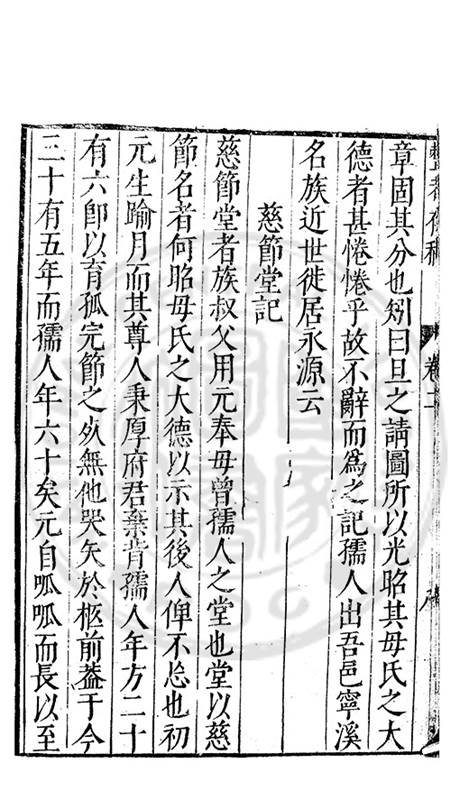 整菴存稿 卷二
章固其分也矧曰旦之請圖所以光昭其母氏之大
德者甚惓惓乎故不辭而為之記孺人出吾邑寧溪
名族近世徙居永源云
慈節堂記
慈節堂者族叔父用元奉母曾孺人之堂也堂以慈
節名者何昭母氏之大德以示其後人俾不忘也初
元生踰月而其尊人秉厚府君棄背孺人年方二十
有六即以育孤完節之死無他哭矢於柩前葢于今
三十有五年而孺人年六十矣元自呱呱而長以至